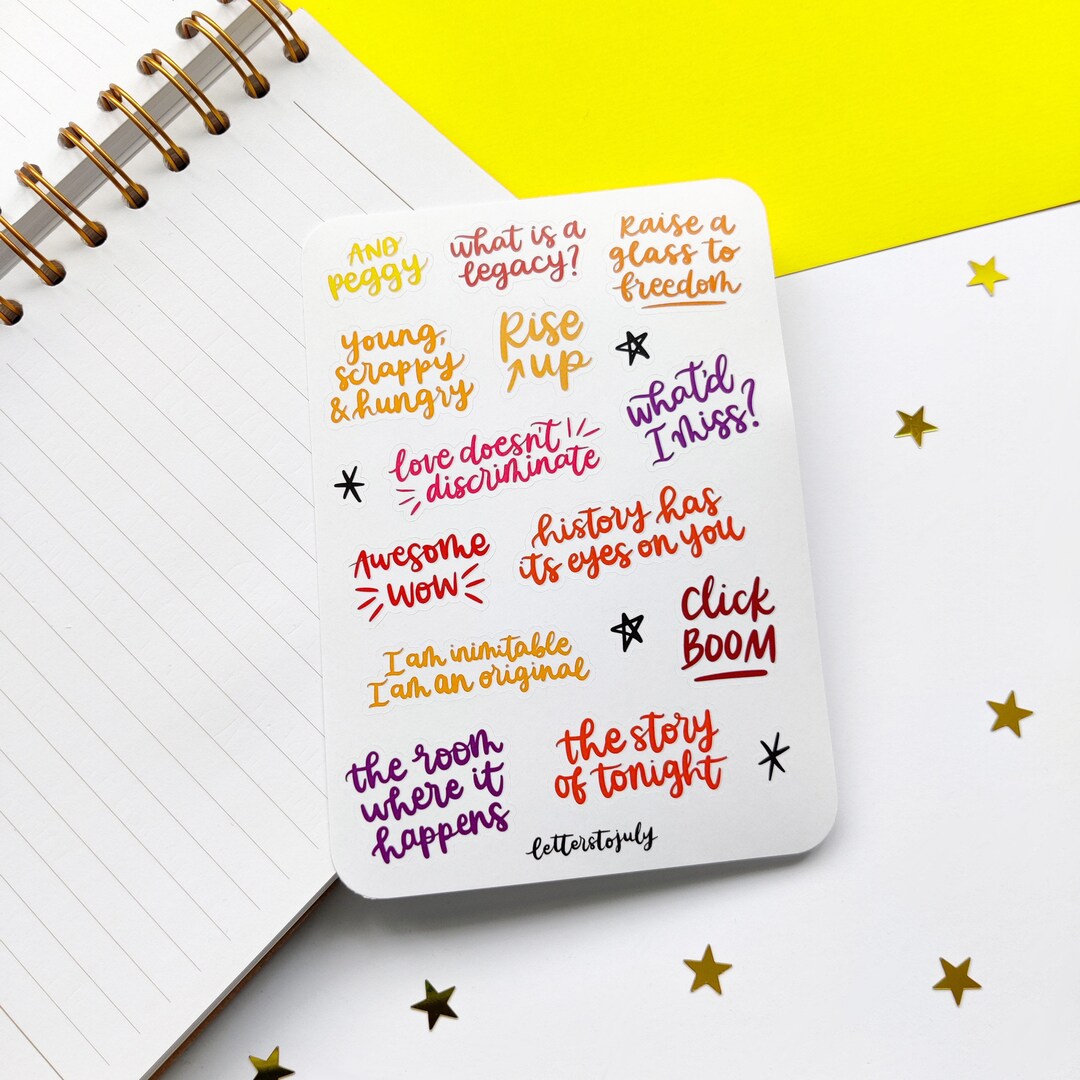 AND
peggy
what is a
legacy?
Raise a
glass to
freedom
young,
scrappy
& hungry
Rise
up
what'd
I miss?
love doesn't
discriminate
Awesome
wow
history has
its eyes on you
Click
BOOM
I am inimitable
I am an original
the room
where it
happens
the story
of tonight
letterstojuly